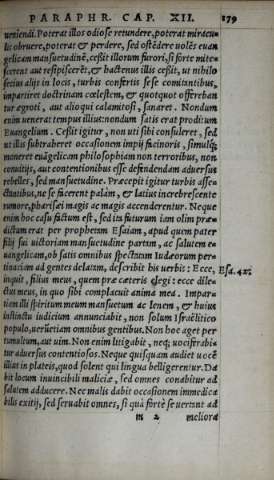 PARAPHR. CAP. XII. 179
ueniendi. Poterat illos odiose retundere, poterat miracu-
lis obruere, poterat & perdere, sed ostēdere uolēs euan
gelicam mansuetudinē, cessit illorum furori, si forte mite-
scerent aut resipiscerēt, & hactenus illis cessit, ut nihilo
secius alijt in locis, turbis confertis sese comitantibus,
impartiret doctrinam cœlestem, & quotquot offereban
tur ægroti, aut alioqui calamitosi, sanaret. Nondum
enim uenerat tempus illius: nondum satis erat proditum
Euangelium. Cessit igitur, non uti sibi consuleret, sed
ut illis subtraheret occasionem impij facinoris, simulq;
moneret euāgelicam philosophiam non terroribus, non
conuitijs, aut contentionibus esse defendendam aduersus
rebelles, sed mansuetudine. Præcepit igitur turbis asse-
ctantibus, ne se facerent palàm, ex latius increbrescente
rumore, pharisæi magis ac magis accenderentur. Neque
enim hoc casu factum est, sed ita futurum iam olim præ=
dictum erat per prophetam Esaiam, apud quem pater
filij sui uictoriam mansuetudine partam, ac salutem e=
uangelicam, ob satis omnibus spectatam Iudæorum per=
tinaciam ad gentes delatam, describit his uerbis: Ecce, Esa. 42.
inquit, filius meus, quem præ cæteris elegi: ecce dile=
ctus meus, in quo sibi complacuit anima mea. Impar=
tiam illi spiritum meum mansuetum ac lenem, & huius
instinctu iudicium annunciabit, non solum Israëlitico
populo, uerūetiam omnibus gentibus. Non hoc aget per
tumultum, aut uim. Non enim litigabit, neq; uociferabi=
tur aduersus contentiosos. Neque quisquam audiet uocē
illius in plateis, quod solent qui lingua belligerentur. Da
bit locum inuincibili maliciæ, sed omnes conabitur ad
salutem adducere. Nec malis dabit occasionem immedica
bilis exitij, sed seruabit omnes, si quà fortè se uertant ad
m 2 meliora